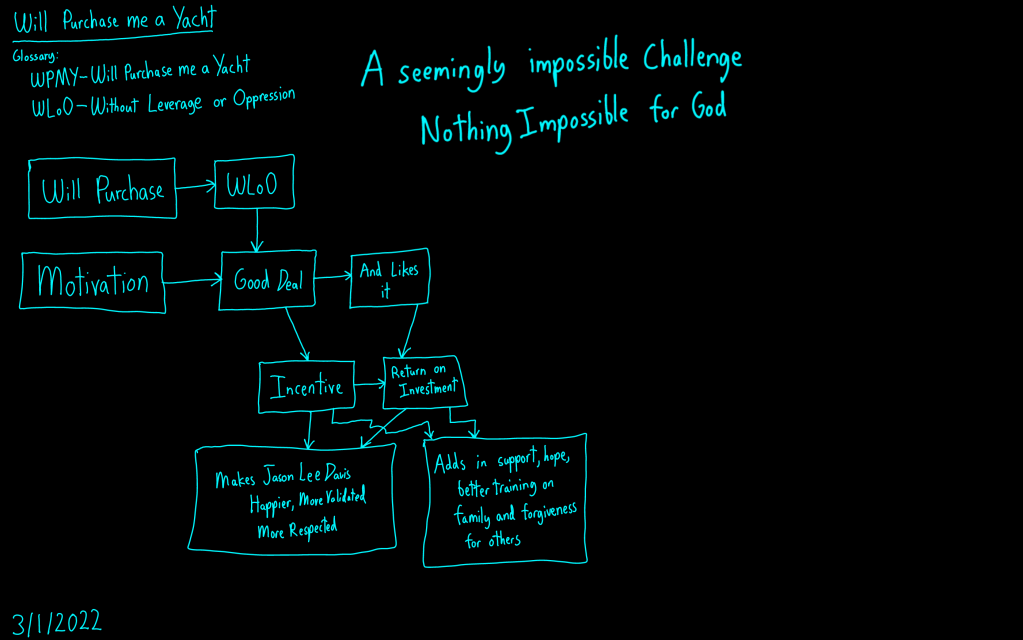 Will Purchase me a Yacht
Glossary:
WPMY-Will Purchase me a Yacht
WLoO-Without Leverage or Oppression
A seemingly impossible Challenge
Nothing Impossible for God
Will Purchase
WLoO
Motivation
Good Deal
And Likes
it
Incentive
Return on
Investment
Makes Jason Lee Davis
Happier, More Validated
More Respected
Adds in support, hope,
better training on
family and forgiveness
for others
3/1/2022